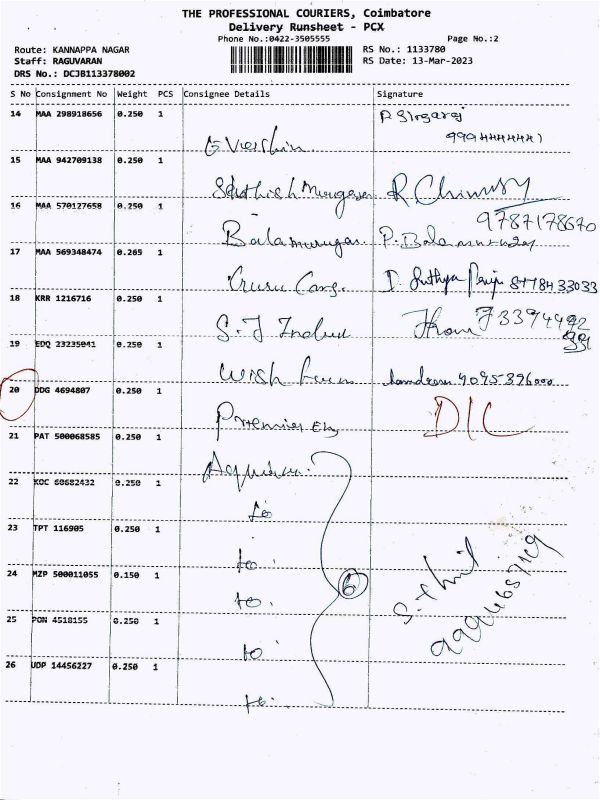 THE PROFESSIONAL COURIERS, Coimbatore
Delivery Runsheet - PCX
Phone No.:0422-3505555 Page No.:2
Route: KANNAPPA NAGAR RS No.: 1133780
Staff: RAGUVARAN RS Date: 13-Mar-2023
DRS No.: DCJB113378002
S No Consignment No Weight PCS Consignee Details Signature
14 MAA 298918656 0.250 1
15 MAA 942709138 0.250 1
Sathish Murugesan
16 MAA 570127658 0.250 1 9787178670
Balamurugan P. Balamurugan
17 MAA 569348474 0.265 1
Guru Cargo
18 KRR 1216716 0.250 1
S.J
19 EDQ 23235041 0.250 1
20 DDG 4694807 0.250 1 D/C
Premier
21 PAT 500068585 0.250 1
22 KOC 60682432 0.250 1
to
23 TPT 116905 0.250 1
to
24 MZP 500011055 0.150 1 6
to
25 PON 4518155 0.250 1
to
26 UDP 14456227 0.250 1
to